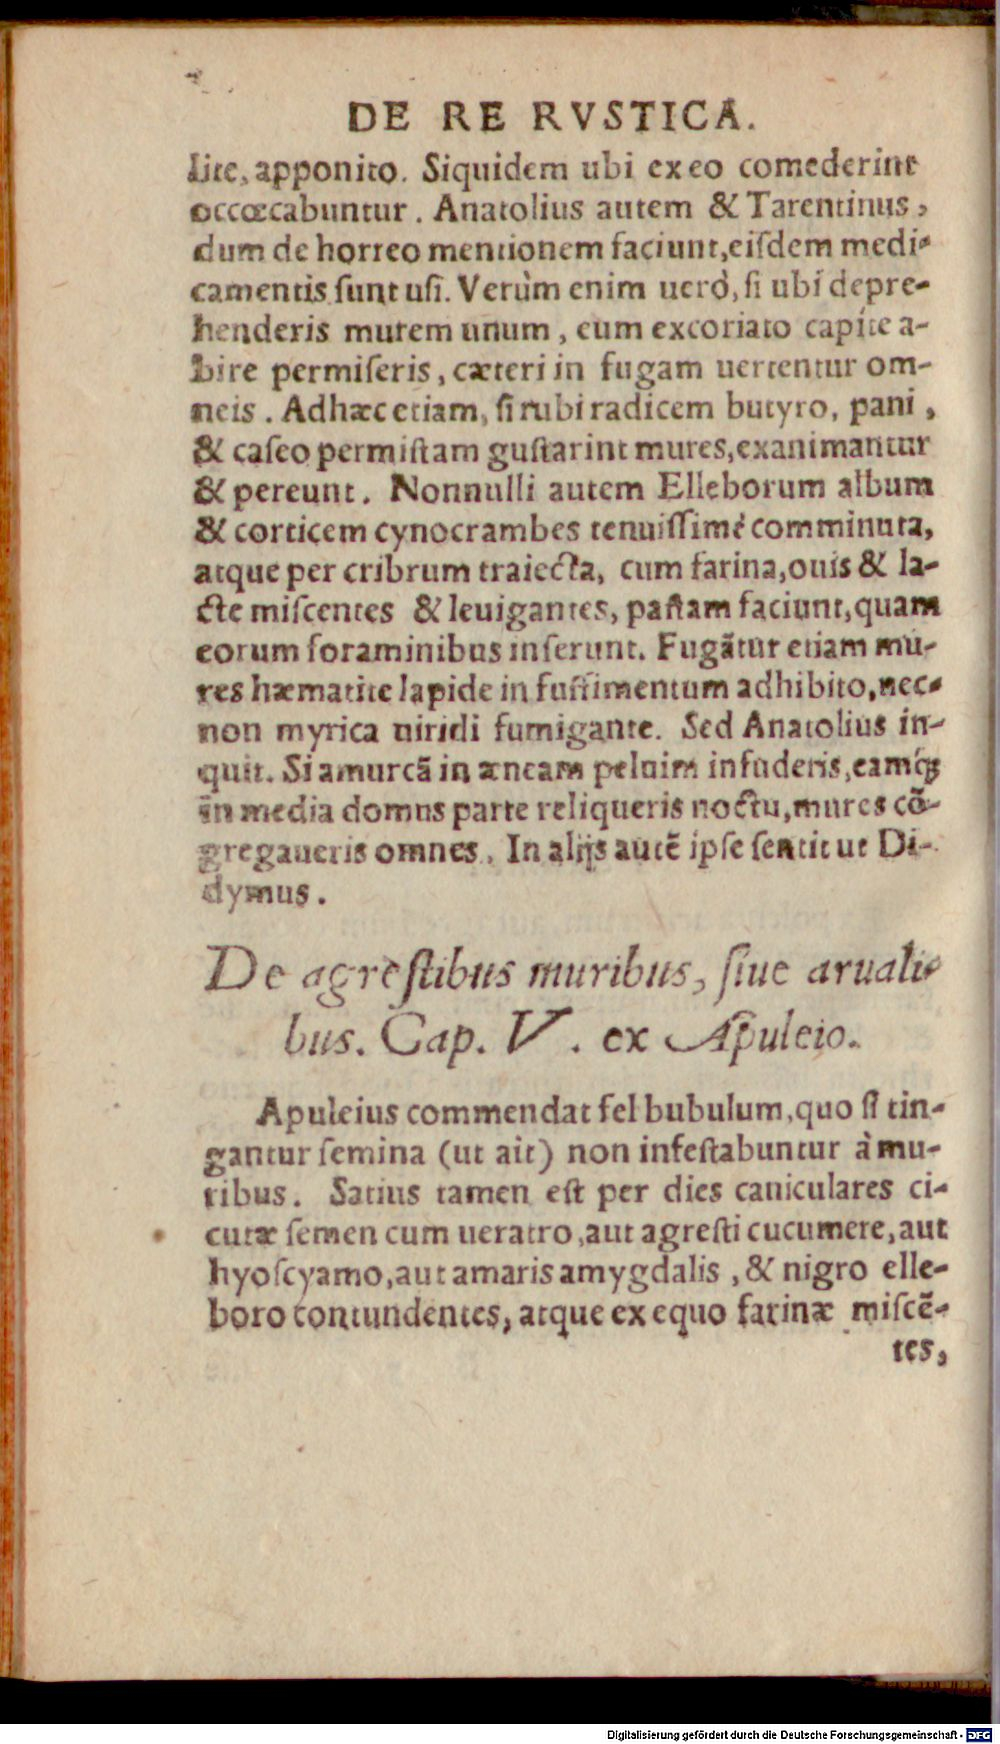 DE RE RVSTICA.
lite, apponito. Siquidem ubi ex eo comederint
occœcabuntur. Anatolius autem & Tarentinus,
dum de horreo mentionem faciunt, eiſdem medi-
camentis ſunt uſi. Verùm enim uerò, ſi ubi depre-
henderis murem unum, eum excoriato capite a-
bire permiſeris, cæteri in fugam uertentur om-
neis. Ad hæc etiam, ſi rubi radicem butyro, pani,
& caſeo permiſtam guſtarint mures, exanimantur
& pereunt. Nonnulli autem Elleborum album
& corticem cynocrambes tenuiſſimè comminuta,
atque per cribrum traiecta, cum farina, ouis & la-
cte miſcentes & leuigantes, paſtam faciunt, quam
eorum foraminibus inſerunt. Fugãtur etiam mu-
res hæmatite lapide in ſuffimentum adhibito, nec-
non myrica uiridi fumigante. Sed Anatolius in-
quit. Si amurcã in æneam peluim infuderis, eamq́ꝫ
in media domus parte reliqueris noctu, mures cõ-
gregaueris omnes. In alijs autẽ ipſe ſentit ut Di-
dymus.
De agreſtibus muribus, ſiue aruali-
bus. Cap. V. ex Apuleio.
Apuleius commendat fel bubulum, quo ſi tin-
gantur ſemina (ut ait) non infeſtabuntur à mu-
ribus. Satius tamen eſt per dies caniculares ci-
cutæ ſemen cum ueratro, aut agreſti cucumere, aut
hyoſcyamo, aut amaris amygdalis, & nigro elle-
boro contundentes, atque ex equo farinæ miſcẽ-
tes,
Digitalisierung gefördert durch die Deutsche Forschungsgemeinschaft - DFG